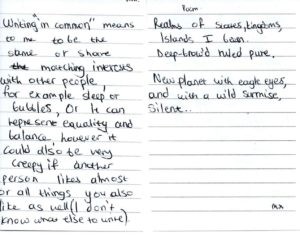 Writing "in common" means
to me to be the
same or share
the matching interests
with other people,
for example sleep or
bubbles, Or It can
represent equality and
balance, however it
could also be very
creepy if another
person likes almost
or all things you also
like as well (I don't
know what else to write)
Poem
Realms of states, kingdoms,
Islands I been.
Deep-brow'd ruled pure.
New planet with eagle eyes,
and with a wild surmise,
Silent..